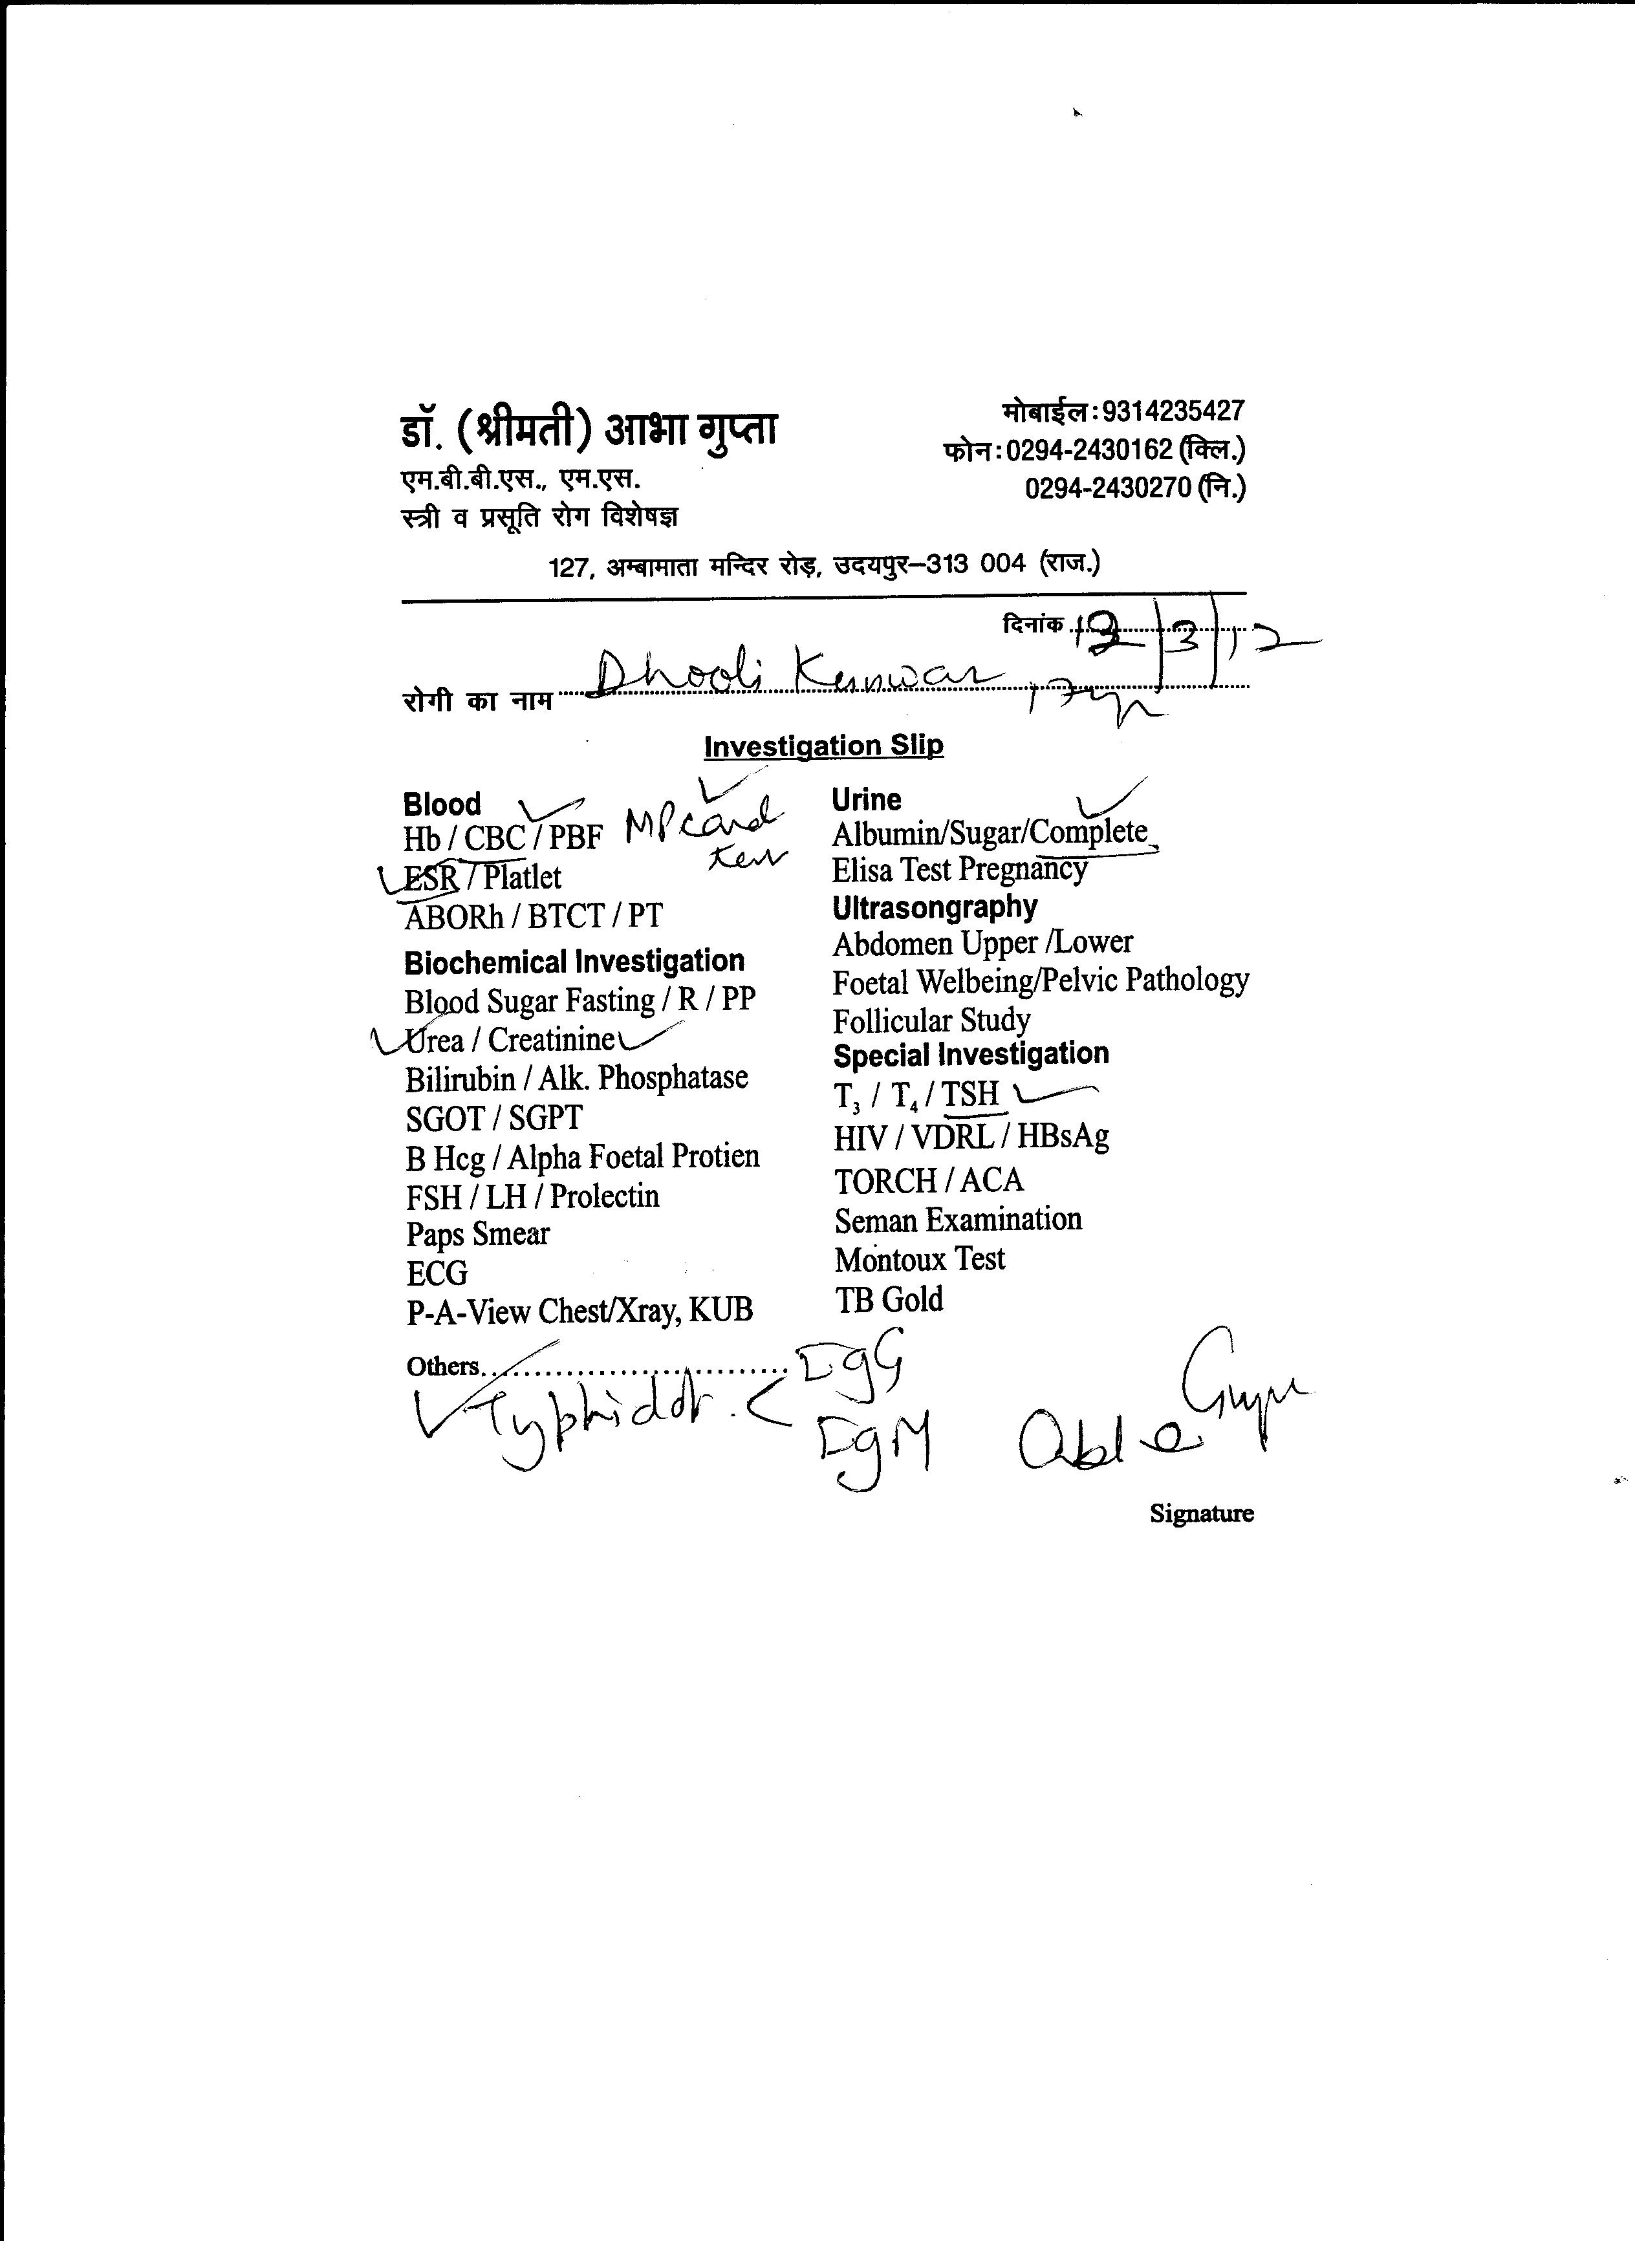 डॉ. (श्रीमती) आभा गुप्ता
एम.बी.बी.एस., एम.एस.
स्त्री व प्रसूति रोग विशेषज्ञ
मोबाईल : 9314235427
फोन : 0294-2430162 (क्लि.)
0294-2430270 (नि.)
127, अम्बामाता मन्दिर रोड़, उदयपुर-313 004 (राज.)
दिनांक 12/3/12
रोगी का नाम Dhooli Kunwar 17yr
Investigation Slip
Blood
Hb / CBC / PBF MP card
ESR / Platlet
ABORh / BTCT / PT
Biochemical Investigation
Blood Sugar Fasting / R / PP
Urea / Creatinine
Bilirubin / Alk. Phosphatase
SGOT / SGPT
B Hcg / Alpha Foetal Protien
FSH / LH / Prolectin
Paps Smear
ECG
P-A-View Chest/Xray, KUB
Urine
Albumin/Sugar/Complete
Elisa Test Pregnancy
Ultrasongraphy
Abdomen Upper /Lower
Foetal Welbeing/Pelvic Pathology
Follicular Study
Special Investigation
T₃ / T₄ / TSH
HIV / VDRL / HBsAg
TORCH / ACA
Seman Examination
Montoux Test
TB Gold
Others.......... IgG
Typhidot. < IgM
Signature